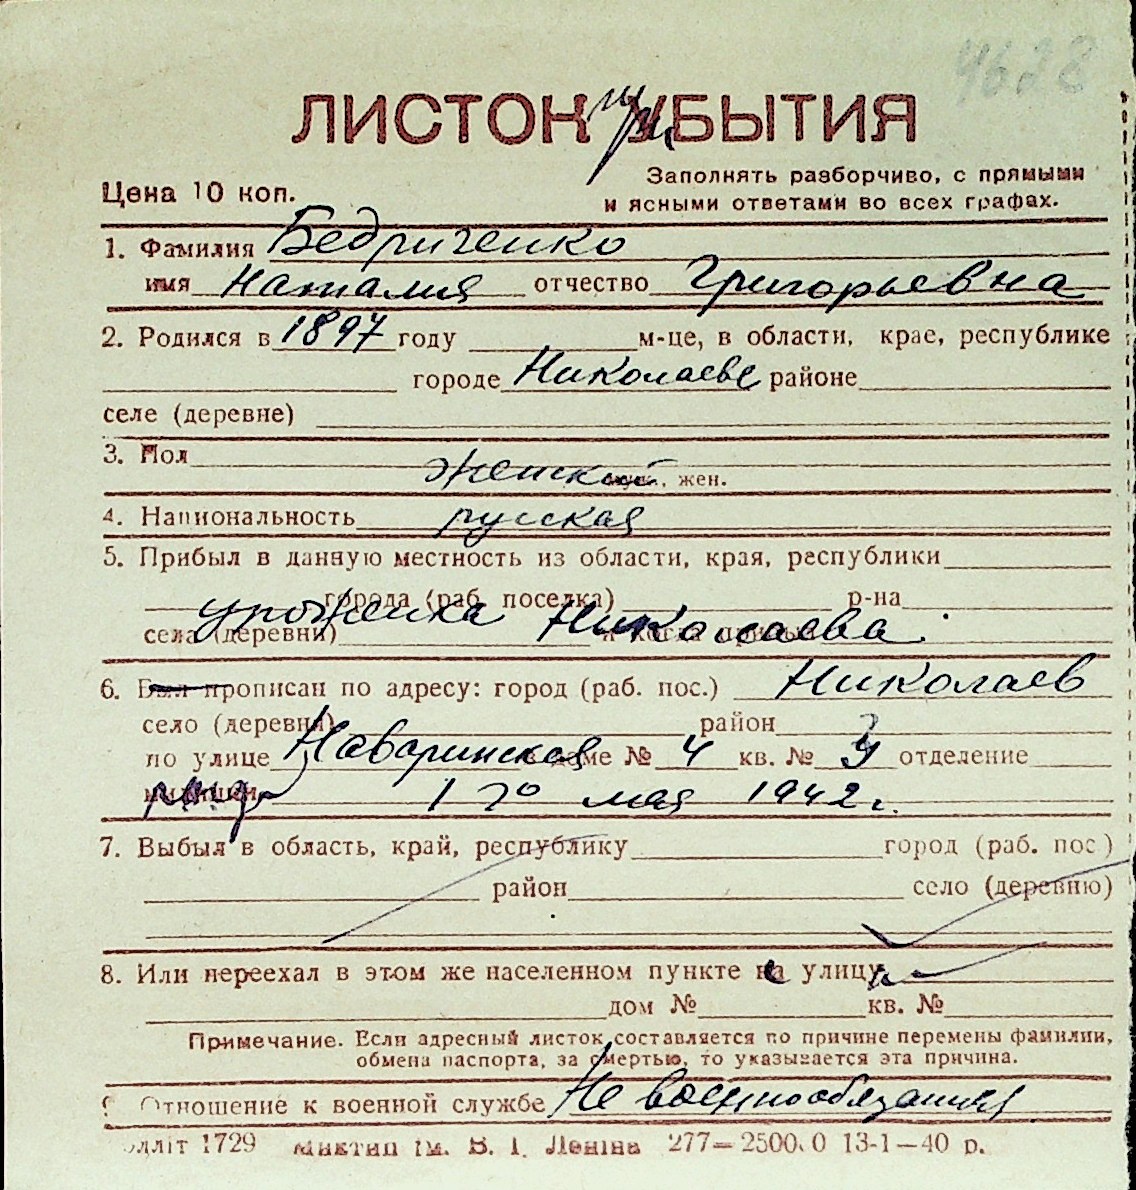 4628
ЛИСТОК УБЫТИЯ
Цена 10 коп.
Заполнять разборчиво, с прямыми
и ясными ответами во всех графах.
1. Фамилия Бедриченко
имя Наталия отчество Григорьевна
2. Родился в 1897 году м-це, в области, крае, республике
городе Николаеве районе
селе (деревне)
3. Пол женский муж., жен.
4. Национальность русская
5. Прибыл в данную местность из области, края, республики
города (раб. поселка) р-на
уроженка Николаева
села (деревни) и когда прибыл
6. Был прописан по адресу: город (раб. пос.) Николаев
село (деревня) район
по улице Наваринская доме № 4 кв. № 3 отделение
милиции 1 го мая 1942 г.
7. Выбыл в область, край, республику город (раб. пос)
район село (деревню)
8. Или переехал в этом же населенном пункте на улицу
дом № кв. №
Примечание. Если адресный листок составляется по причине перемены фамилии,
обмена паспорта, за смертью, то указывается эта причина.
9. Отношение к военной службе Не военнообязанная
одліт 1729 Миктип ім. В. І. Леніна 277—2500.0 13-1—40 р.